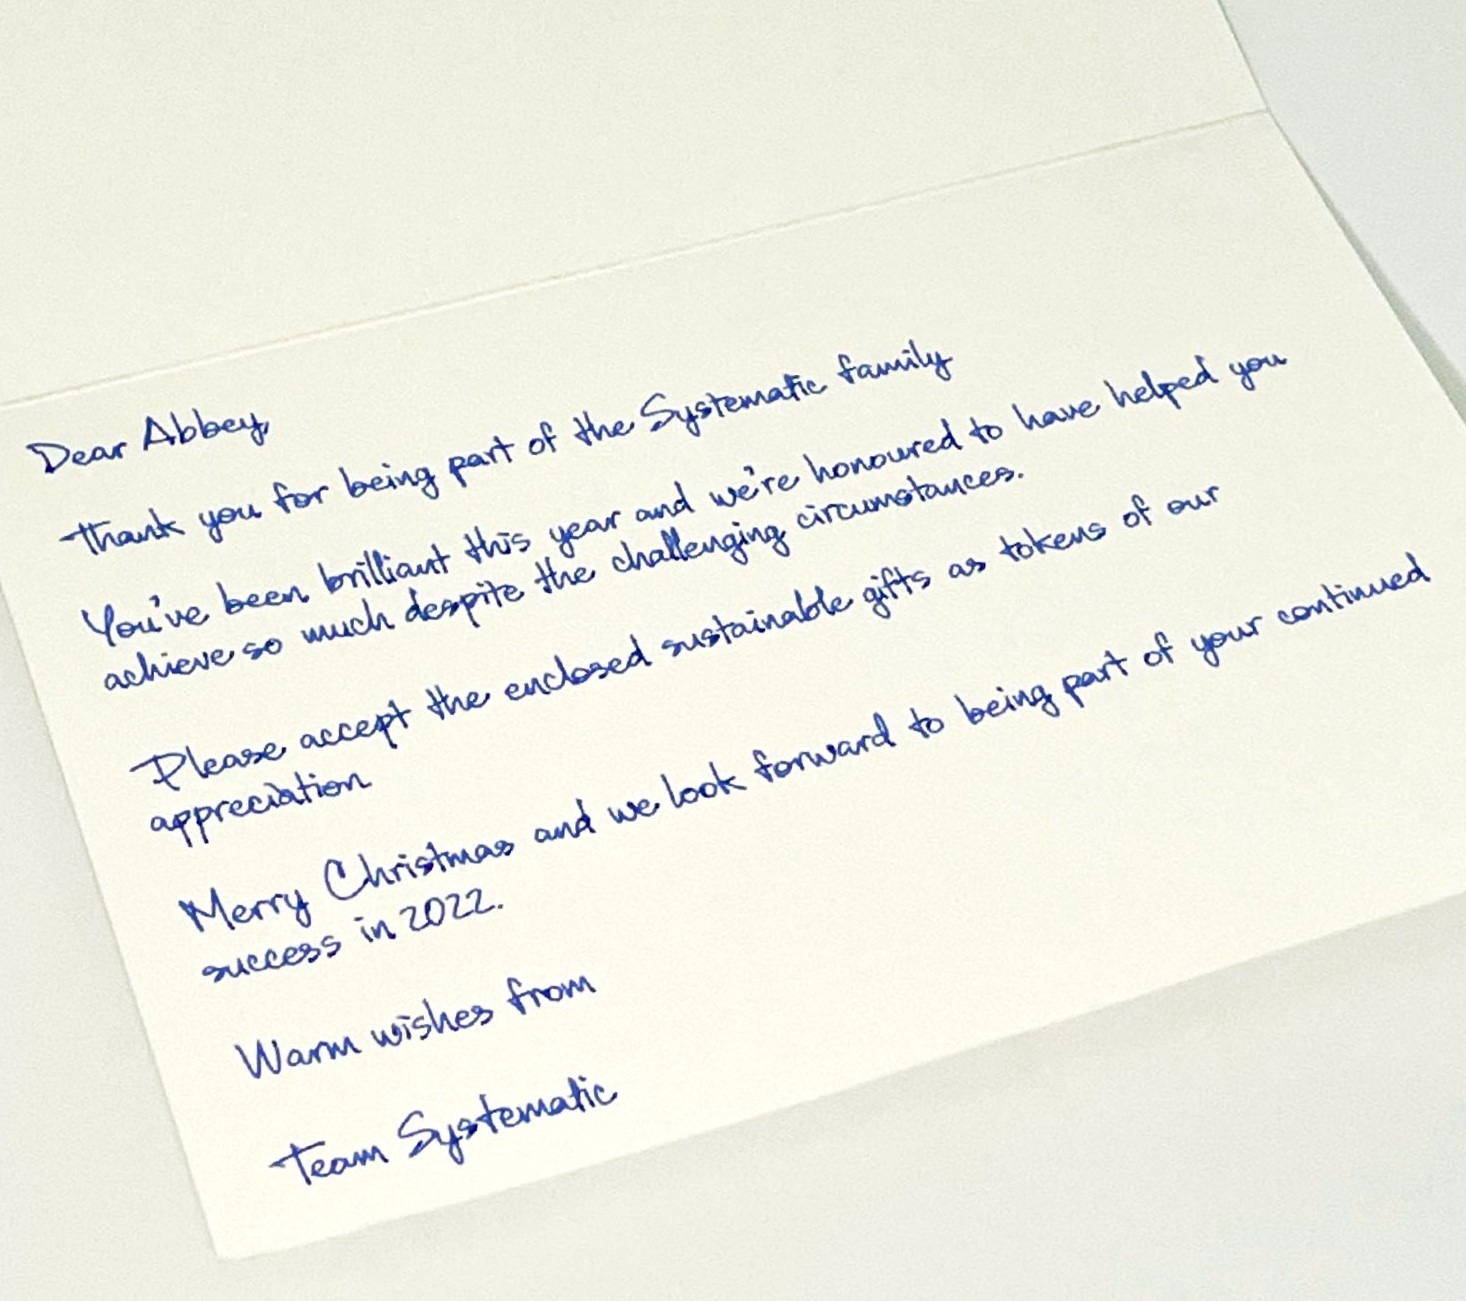 Dear Abbey,
Thank you for being part of the Systematic family
You've been brilliant this year and we're honoured to have helped you
achieve so much despite the challenging circumstances.
Please accept the enclosed sustainable gifts as tokens of our
appreciation
Merry Christmas and we look forward to being part of your continued
success in 2022.
Warm wishes from
Team Systematic